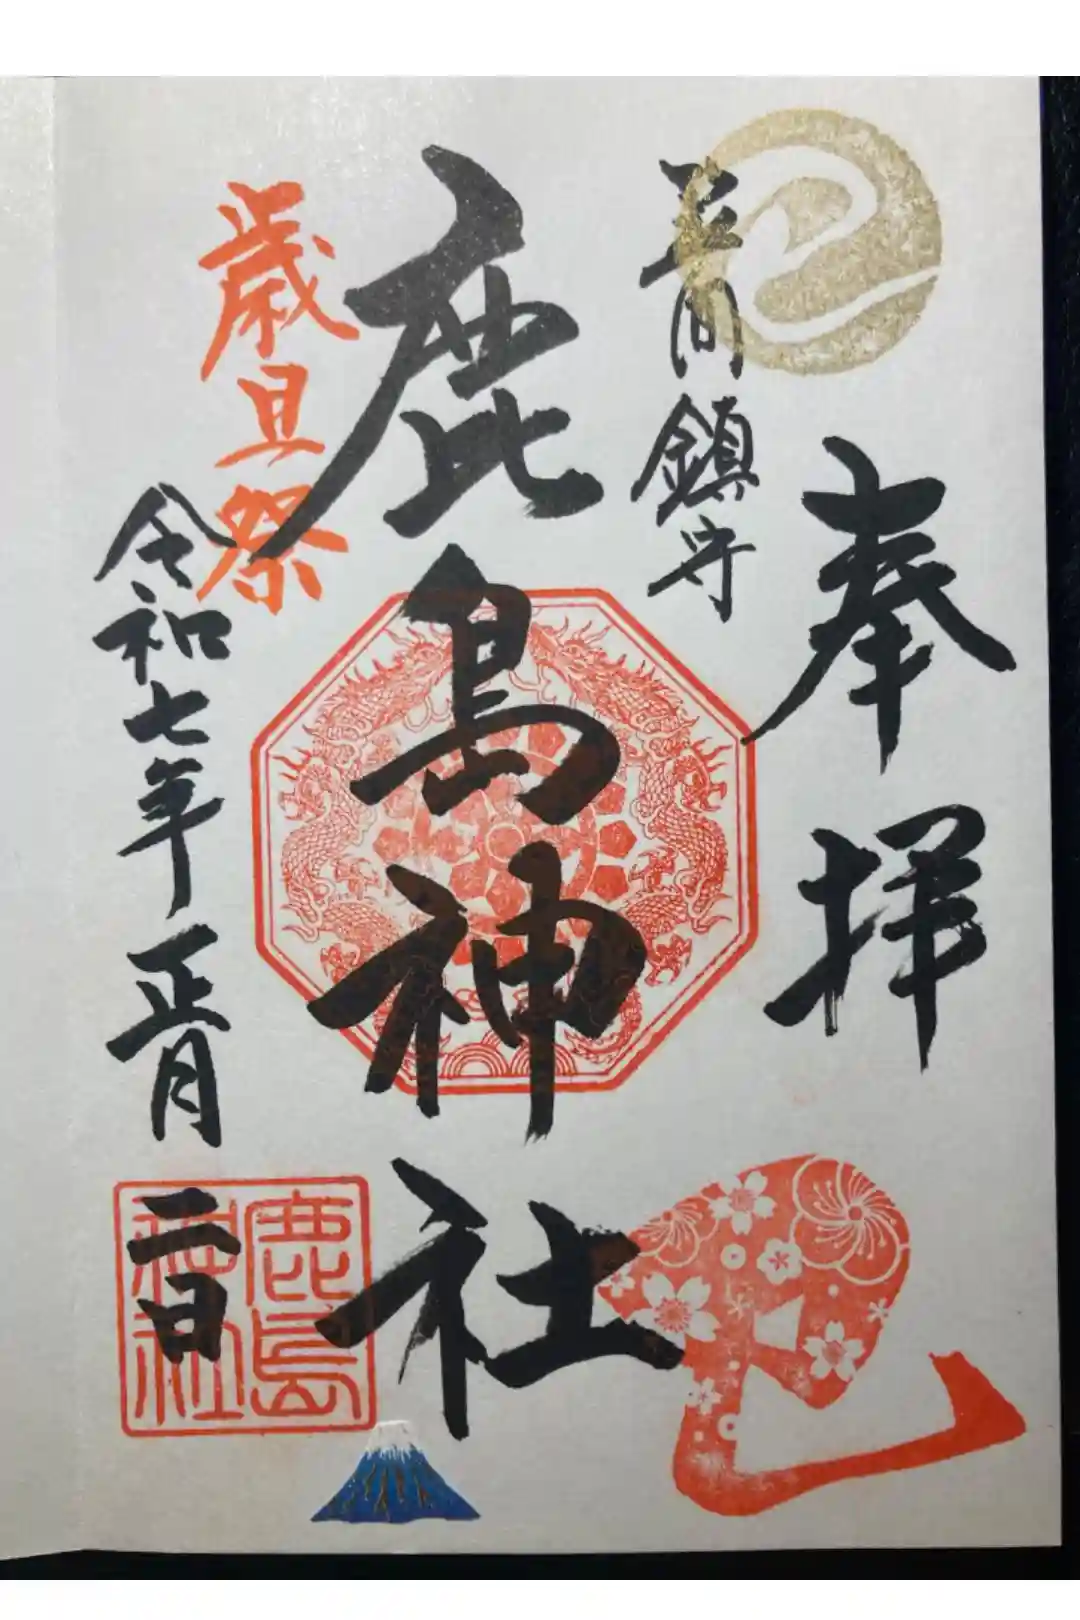 奉拝
巳
鎮守
鹿島神社
歳旦祭
令和七年正月二日
鹿島
神社